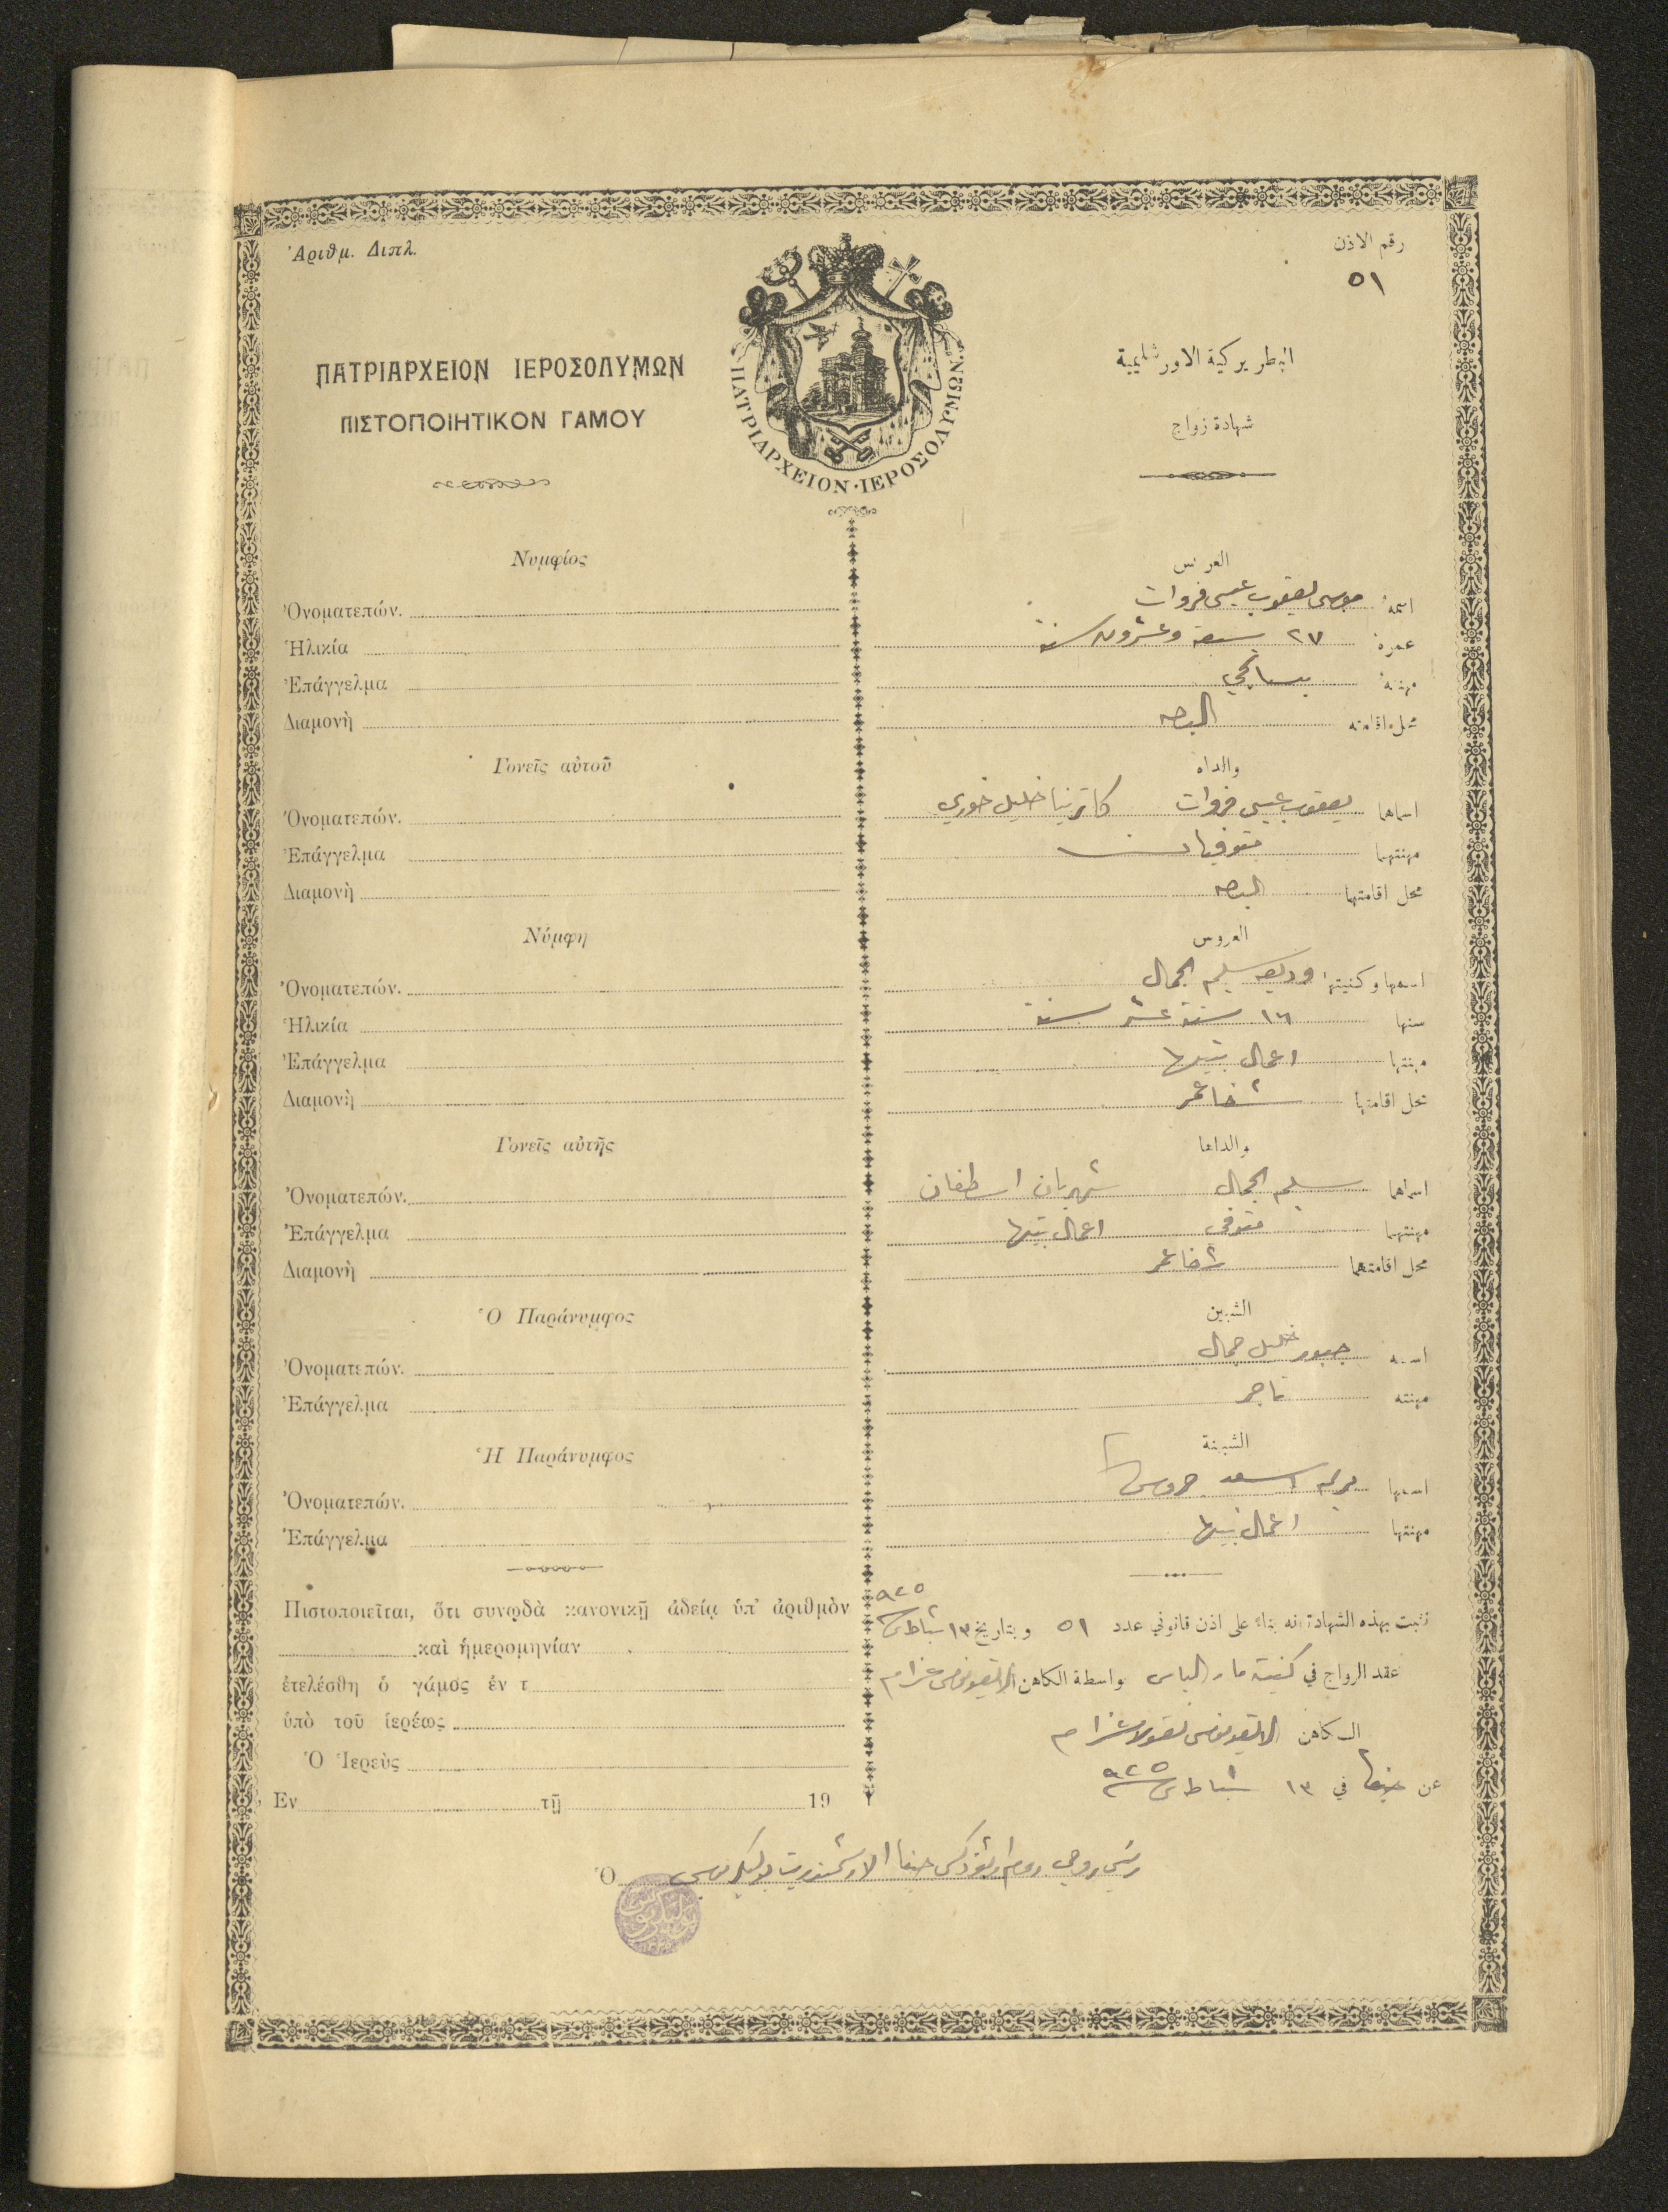 Ἀριθμ. Διπλ.
رقم الاذن
٥١
ΠΑΤΡΙΑΡΧΕΙΟΝ ΙΕΡΟΣΟΛΥΜΩΝ
البطريركية الاورشليمية
ΠΙΣΤΟΠΟΙΗΤΙΚΟΝ ΓΑΜΟΥ
شهادة زواج
ΠΑΤΡΙΑΡΧΕΙΟΝ·ΙΕΡΟΣΟΛΥΜΩΝ.
Νυμφίος
العريس
Ὀνοματεπών.
اسمه موسى يعقوب عيسى فروات
Ἡλικία
عمره ٢٧ سبعة وعشرون سنة
Ἐπάγγελμα
مهنته
Διαμονὴ
محل اقامته البصه
Γονεῖς αὐτοῦ
والداه
Ὀνοματεπών.
اسماهما يعقوب عيسى فروات كاترينا خليل خوري
Ἐπάγγελμα
مهنتهما متوفيان
Διαμονὴ
محل اقامتهما البصه
Νύμφη
العروس
Ὀνοματεπών.
اسمها وكنيتها وديعه سليم الجمال
Ἡλικία
سنها ١٦ ستة عشر سنة
Ἐπάγγελμα
مهنتها اعمال بيتها
Διαμονὴ
محل اقامتها شفاعمر
Γονεῖς αὐτῆς
والداها
Ὀνοματεπών.
اسماهما سليم الجمال شهربان اسطفان
Ἐπάγγελμα
مهنتهما متوفي اعمال بيتها
Διαμονὴ
محل اقامتهما شفاعمر
Ὁ Παράνυμφος
الشبين
Ὀνοματεπών.
اسمه جبور خليل جمال
Ἐπάγγελμα
مهنته تاجر
Ἡ Παράνυμφος
الشبينة
Ὀνοματεπών.
اسمها مريم اسعد
Ἐπάγγελμα
مهنتها اعمال بيتها
Πιστοποιεῖται, ὅτι συνῳδὰ κανονικῇ ἀδείᾳ ὑπ' ἀριθμὸν
καὶ ἡμερομηνίαν
ἐτελέσθη ὁ γάμος ἐν τ
ὑπὸ τοῦ ἱερέως
Ὁ Ἱερεὺς
Ἐν τῇ 19
تثبت بهذه الشهادة انه بناء على اذن قانوني عدد ٥١ وبتاريخ ١٣ شباط ٩٢٥
عقد الزواج في كنيسة مار الياس بواسطة الكاهن الايقونوموس عزام
الكاهن الايقونوموس نقولا عزام
عن حيفا في ١٣ شباط ٩٢٥
Ὁ رئيس روحي روم ارثوذكس حيفا الارشمندريت بوليكربوس